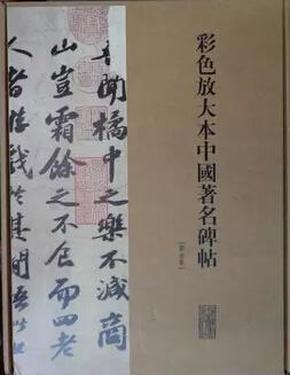 彩色放大本中國著名碑帖
聞橘中之樂不減商
山豈霜餘之不食而四老
人者遊戲於其間